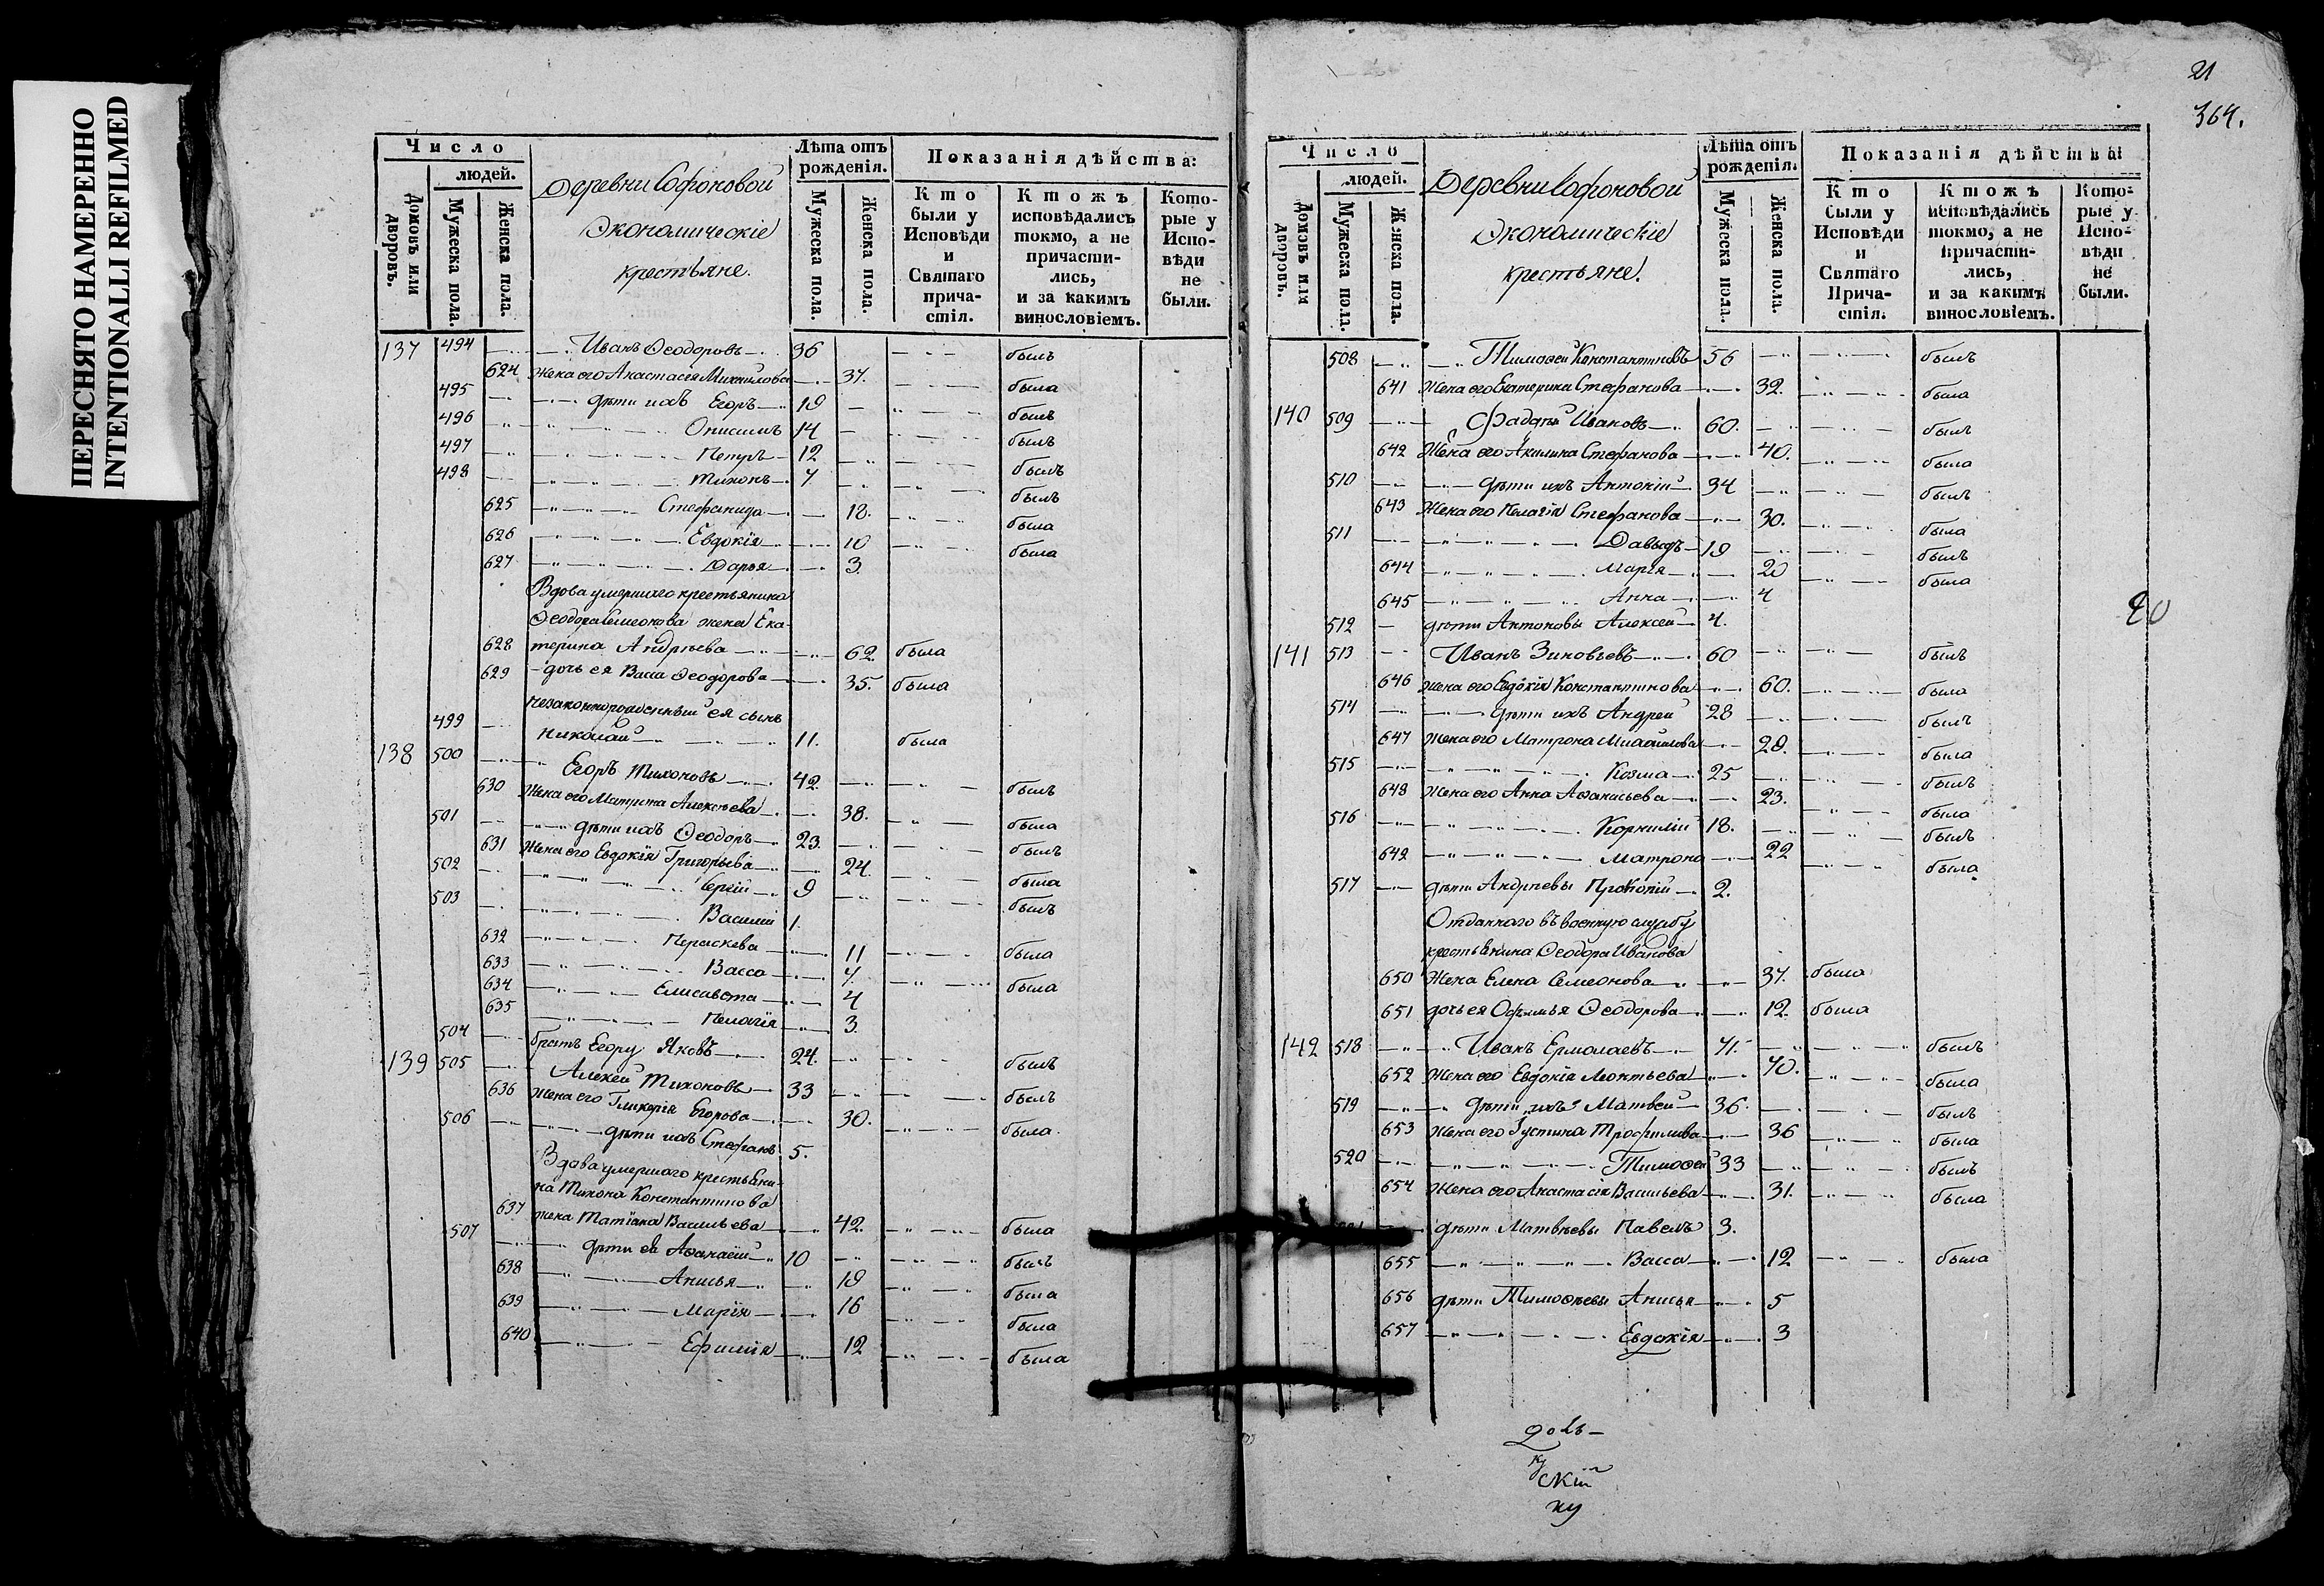 ПЕРЕСНЯТО НАМЕРЕННО
INTENTIONALLI REFILMED
Число
людей.
Домовъ или дворовъ.
Мужеска пола.
Женска пола.
Деревни Софоновой
Экономическіе
крестьяне.
Лѣта отъ рожденія.
Мужеска пола.
Женска пола.
Показанія дѣйства:
Кто были у Исповѣди и Святаго причастія.
Ктожъ исповѣдались токмо, а не причастились, и за какимъ винословіемъ.
Которые у Исповѣди не были.
137 494 Иванъ Ѳеодоровъ 36 былъ
624 жена его Анастасія Михайлова 37. была
495 дѣти ихъ Егоръ 19 былъ
496 Онисимъ 14 былъ
497 Петръ 12 былъ
498 Тихонъ 7 былъ
625 Стефанида 18. была
626 Евдокія 10 была
627 Дарья 3.
Вдова умершаго крестьянина
Ѳеодора Симеонова жена Ека-
628 терина Андрѣева 62. была
629 дочь ея Васса Ѳеодорова 35. была
незаконнорожденный ея сынъ
499 Николай 11. была
138 500 Егоръ Тихоновъ 42. былъ
630 жена его Матрена Алексѣева 38. была
501 дѣти ихъ Ѳеодоръ 23. былъ
631 жена его Евдокія Григорьева 24. была
502 Сергій 9 былъ
503 Василій 1.
632 Пераскева 11 была
633 Васса 7. была
634 Елисавета 4
635 Пелагія 3.
504 братъ Егору Яковъ 24. былъ
139 505 Алексей Тихоновъ 33 былъ
636 жена его Гликерія Егорова 30. была.
506 дѣти ихъ Стефанъ 5.
Вдова умершаго крестьяни-
на Тихона Константинова
637 жена Татіана Васильева 42. была
507 дѣти ея Аѳанасій 10 былъ
638 Анисья 19 была
639 Марія 16 была
640 Ефимія 12 была
21
364.
Число
людей.
Домовъ или дворовъ.
Мужеска пола.
Женска пола.
Деревни Софоновой
Экономическіе
крестьяне.
Лѣта отъ рожденія.
Мужеска пола.
Женска пола.
Показанія дѣйства:
Кто были у Исповѣди и Святаго Причастія.
Ктожъ исповѣдались токмо, а не причастились, и за какимъ винословіемъ.
Которые у Исповѣди не были.
508 Тимоѳей Константиновъ 56 былъ
641 жена его Екатерина Стефанова 32. была
140 509 Фадѣй Ивановъ 60. былъ
642 жена его Акилина Стефанова 40. была
510 дѣти ихъ Антоній 34 былъ
643 жена его Пелагія Стефанова 30. была
511 Давыдъ 19 былъ
644 Марія 20 была
645 Анна 4
512 дѣти Антоновы Алексей 4.
141 513 Иванъ Зиновьевъ 60 былъ
646 жена его Евдокія Константинова 60. была
514 дѣти ихъ Андрей 28 былъ
647 жена его Матрона Михайлова 29. была
515 Козма 25 былъ
648 жена его Анна Аѳанасьева 23. была
516 Корнилій 18. былъ
649 Матрона 22 была
517 дѣти Андрѣевы Прокопій 2.
Отданнаго въ военную службу
крестьянина Ѳеодора Иванова
650 жена Елена Семеонова 37. была
651 дочь ея Офимья Ѳеодорова 12. была
142 518 Иванъ Ермолаевъ 71. былъ
652 жена его Евдокія Леонтьева 70. была
519 дѣти ихъ Матвей 36. былъ
653 жена его Іустина Трофимова 36 была
520 Тимоѳей 33 былъ
654 жена его Анастасія Васильева 31. была
дѣти Матвѣевы Павелъ 3.
655 Васса 12 была
656 дѣти Тимоѳѣевы Анисья 5
657 Евдокія 3
скій